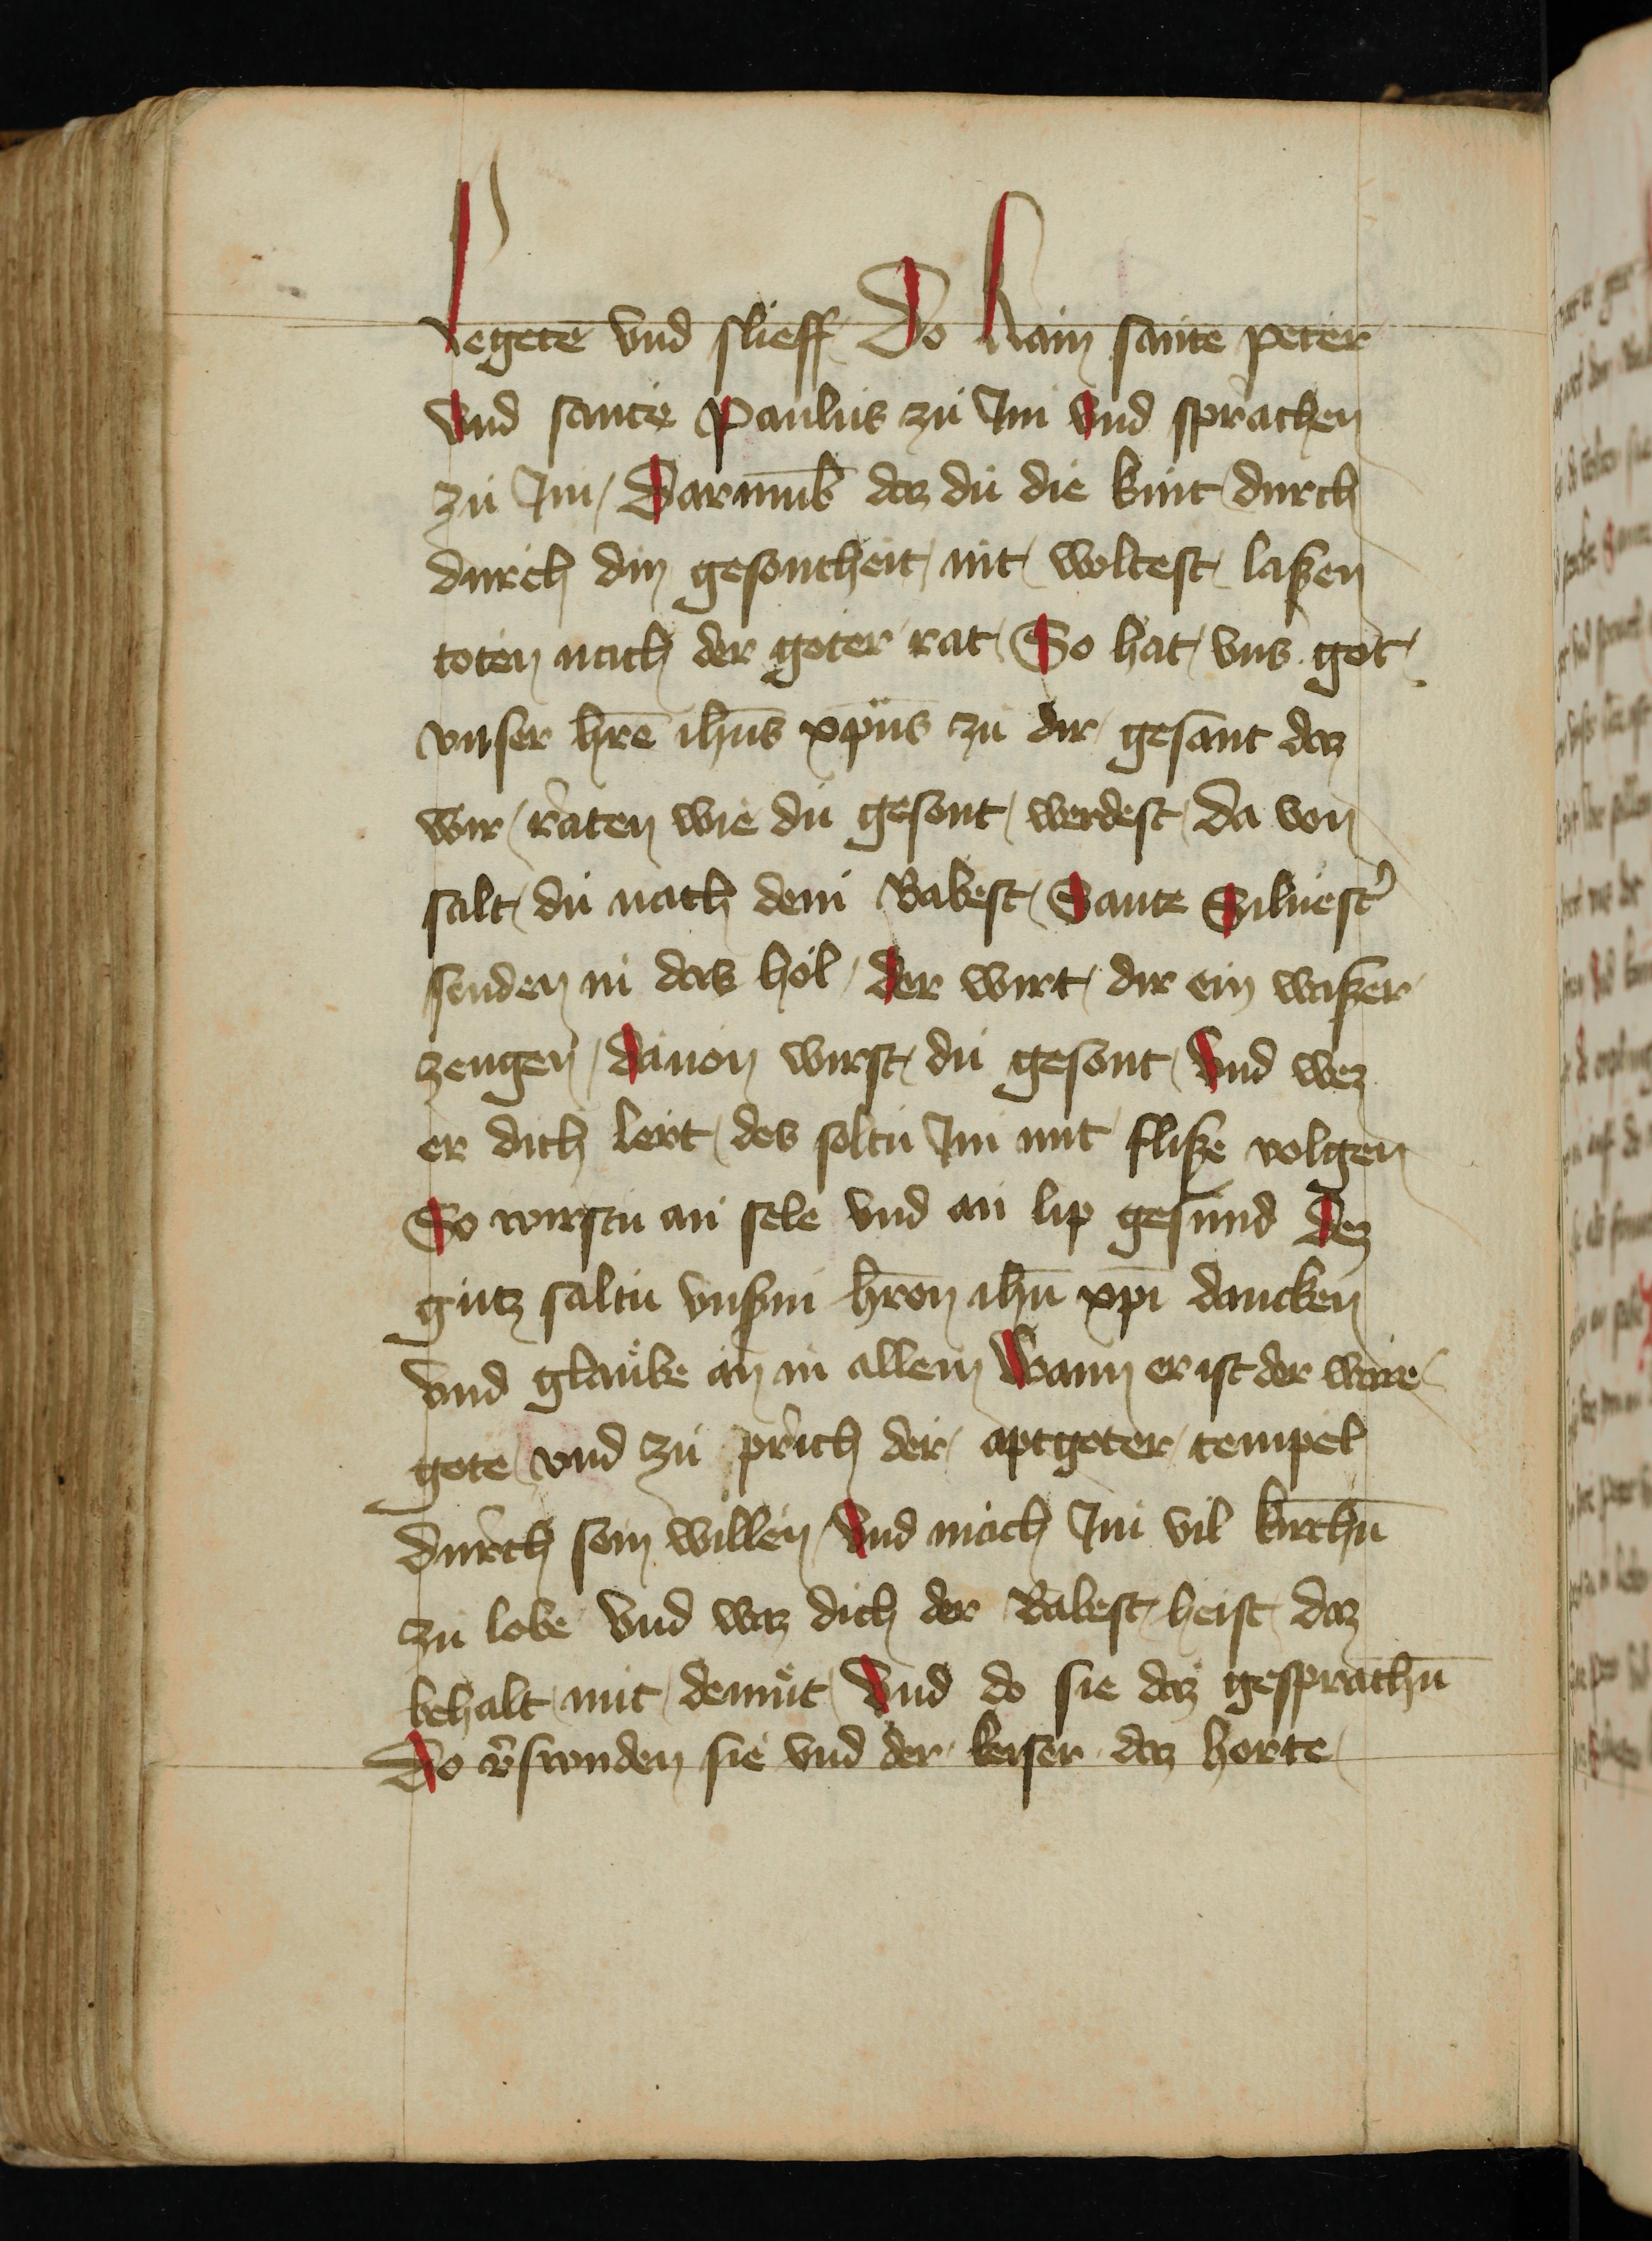 Legete vnd slieff Do kam sante peter
vnd sante Paulus zu Im vnd sprachen
zu Im / Darumb daz du die kint durch
durch din gesontheit nit woltest laßen
toten nach der goter rat So hat vns got
vnser hr̄e ih̄us xp̄us zu dir gesant daz
wir raten wie du gesont werdest Da von
salt du nach dem Babest Sante Siluest͛
senden in das hol / der wirt dir ein waßer
zeugen / dauon wirst du gesont / vnd wez
er dich lert des soltu Im mit fliße volgen
So wirstu an sele vnd an lip gesund dez
gutz saltu vnßm hr̄en ih̄u xp̄i dancken
vnd glaube an in allem Wann er ist der ware
gote vnd zu prich der aptgoter tempel
durch sein willen / Vnd mach Im vil kirchn̄
zu lobe vnd waz dich der Babest heist daz
behalt mit demut Vnd do sie daz gesprachn̄
Do v͛swonden sie vnd der keiser daz horte